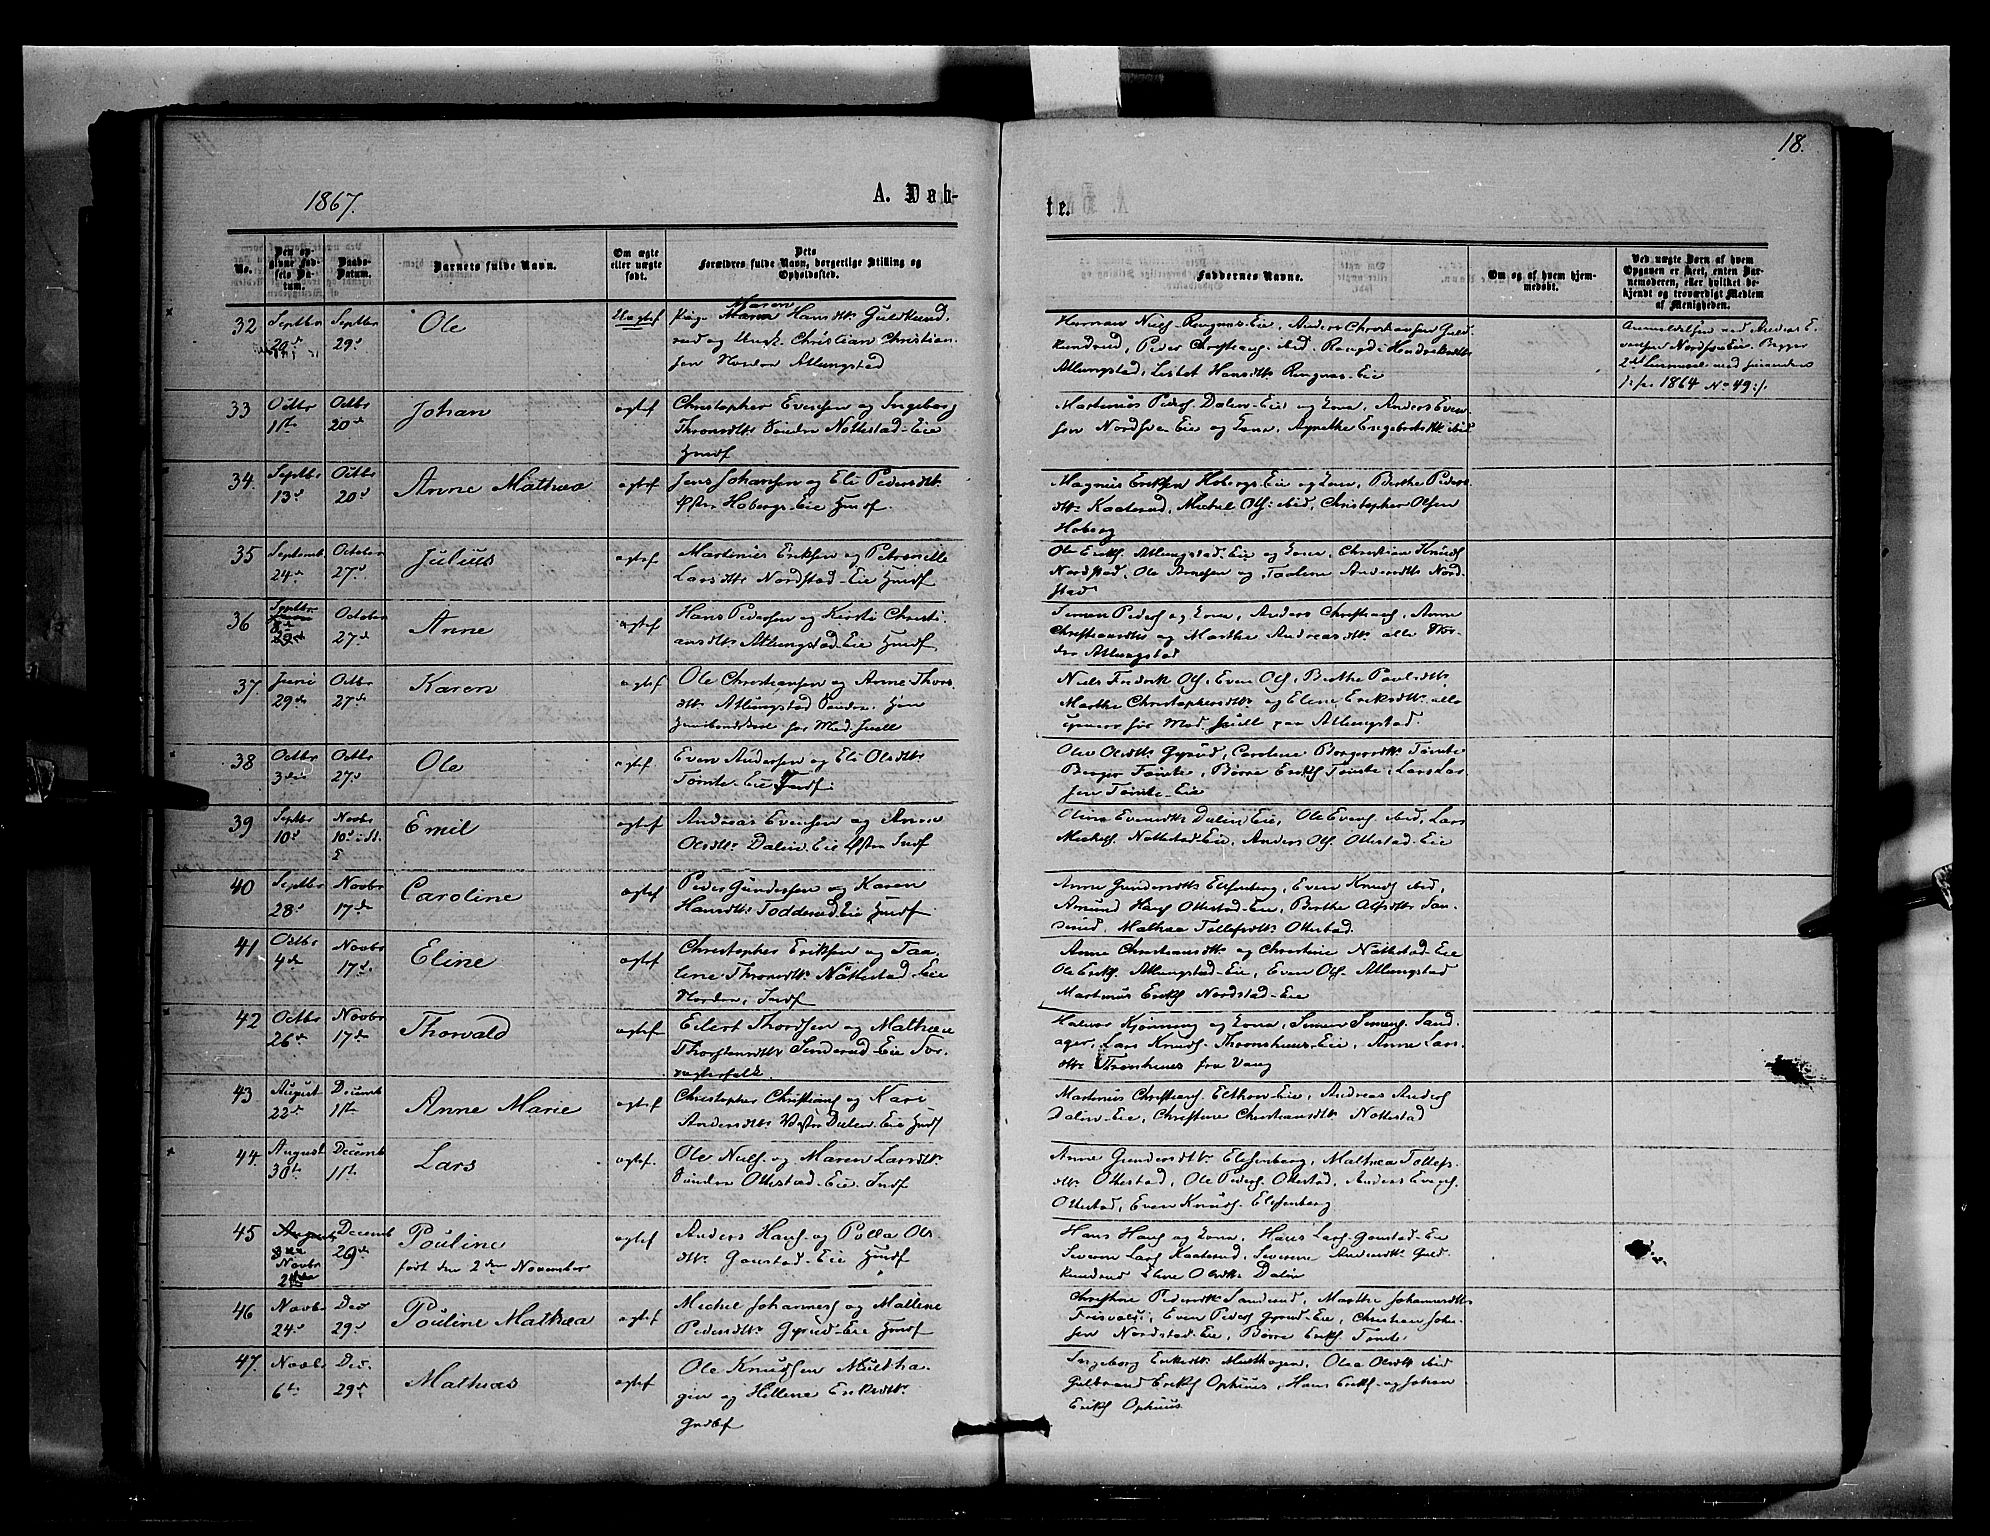 18.
1867.
A. Døb-
te.
No.
Den opgivne Fødsels Datum.
Daabs-Datum.
Barnets fulde Navn.
Om ægte eller uægte født.
Dets Forældres fulde Navn, borgerlige Stilling og Opholdssted.
Faddernes Navne.
Om og af hvem hjemmedøbt.
Ved uægte Børn af hvem Opgaven er skeet, enten Barnemoderen, eller hvilket bekjendt og troværdigt Medlem af Menigheden.
32 Septbr Septbr Ole Uægtef Pige Maren Hansdtr Guldkund
29d
rud og Ungk. Christian Christian-
sen Nordre Atlungstad
Herman Niels. Rengnes-Eie, Anders Christiansen Guld
kundrud, Peder Christians. ibid. Hendriksdtr
Atlungstad, Lisbet Hansdtr Rengnes-Eie
Anmeldelsen ved Andreas E-
vensen Nordsveen Eie. Begges
2det Leiermaal med hinanden
1864 No 49
33 Octbr Octbr Johan ægtef Christopher Evensen og Ingeborg
1ste 20de Thronsdtr Søndre Nøttestad-Eie
Huusf
Martinius Peders. Dalen-Eie og Kona, Anders Even
sen Nordsveen Eie og Kona, Agnethe Engebretsdtr ibid
34. Septbr Octbr Anne Mathea ægtef Jens Johansen og Eli Pedersdtr
13d 20d Østre Hoberg-Eie Huusf.
Magnus Eriksen Hobergs-Eie og Kona, Berthe Peders
dtr Kaaterud, Mickel Ols. ibid, Christopher Olsen
Hoberg
35 Septemb October Julius ægtef Martinius Eriksen og Petronelle
24de 27d. Larsdtr Nordstad-Eie Huusf
Ole Eriks. Atlungstad-Eie og Kona, Christian Knuds
Nordstad, Ole Arnesen og Taaline Andersdtr Nord-
stad
36 Septbr October Anne ægtef Hans Pedersen og Kirsti Christi
27de ansdtr Atlungstad-Eie Huusf
Simen Peders og Kona, Anders Christians., Anne
Christiansdtr og Marthe Andreasdtr alle Nor-
dre Atlungstad
37. Juni Octbr Karen ægtef Ole Christiansen og Anne Thors
29de 27de dtr Atlungstad Søndre.
for Mad. Juell
Niels Fredrik Ols, Even Ols, Berthe Paulsdtr
Marthe Christophersdtr og Eline Eriksdtr alle
Mad. Juell paa Atlungstad.
38 Octbr Octbr Ole ægtef. Even Andersen og Eli Olsdtr
3die 27d Tomte-Eie Huusf.
Olea Olsdtr Gyrud, Caroline Borgersdtr Tomte
Borger Tomte, Børre Eriks Tomte, Lars Lar
sen Tomte-Eie
39 Septbr Novbr Emil ægtef Andreas Evensen og Anne
10d 10d Olsdtr Dalen-Eie Østre Indf
Oline Evensdtr Dalen Eie, Ole Evens ibid, Lars
Mickels. Nøttestad-Eie, Anders Ols Ottestad-Eie
40 Septbr Novbr Caroline ægtef Peder Gundersen og Karen
28d 17de Hansdtr Toddersrud-Eie Huusf.
Anne Gundersdtr Elisenberg, Even Knuds ibid,
Amund Hans Ottestad-Eie, Berthe
Mathea Tollefsdtr Ottestad.
41 Octbr Novbr Eline ægtef Christopher Eriksen og Taa-
4de 17d. line Thronsdtr Nøttestad-Eie
Nordre, Indf
Anne Christiansdtr og Christine Nøttestad-Eie
Ole Eriks Atlungstad-Eie, Even Ols Atlungstad
Martinus Eriks Nordstad-Eie
42 Octbr Novbr Thorvald ægtef Eilert Thordsen og Mathea
26de 17de Thorstensdtr Sinderud-Eie For-
pagterfolk.
Halvor Kjønning og Kona, Simen Simens. Sand-
ager, Lars Knuds. Thronshuus-Eie, Anne Lars
dtr Thronshuus fra Vang
43 August Decemb Anne Marie ægtef Christopher Christians og Kari
22de 1ste Andersdtr Vestre Dalen-Eie Huusf
Martinus Christians. Elthon-Eie, Andreas Anders
Dalen-Eie, Christine Christiansdtr Nøttestad
44. August Decemb Lars ægtef. Ole Niels. og Maren Larsdtr.
30te 1ste Søndre Ottestad-Eie. Indf
Anne Gundersdtr Elisenberg, Mathea Tollefs-
dtr Ottestad, Ole Peders. Ottestad, Anders Evens.
Ottestad, Even Knuds. Elisenberg
45 Decemb Pouline ægtef Anders Hans. og Polla Ols
Novbr 29de født den 2den November dtr. Gaustad-Eie Huusf
2den
Hans Hans og Kona, Hans Lars. Gaustad-Eie
Severin Lars Kaaterud, Severine Andersdtr Guld
kundrud Eline Olsdtr Dalen
46 Novbr Dec Pouline Mathea ægtef Mickel Johannes og Mallene
24d 29d Pedersdtr Gyrud-Eie Huusf
Christine Pedersdtr Sanderud, Marthe Johannesdtr
Frisvold, Even Peders Gyrud-Eie, Christian Johan-
sen Nordstad-Eie, Børre Eriks. Tomte
47. Novbr Dec. Mathias ægtef Ole Knudsen Multha-
6te 29d gen og Hellene Eriksdtr.
Grdbf
Ingeborg Eriksdtr Multhagen, Olea Olsdtr ibid
Gulbrand Eriks Ophuus, Hans Eriks. og Johan
Eriks Ophuus